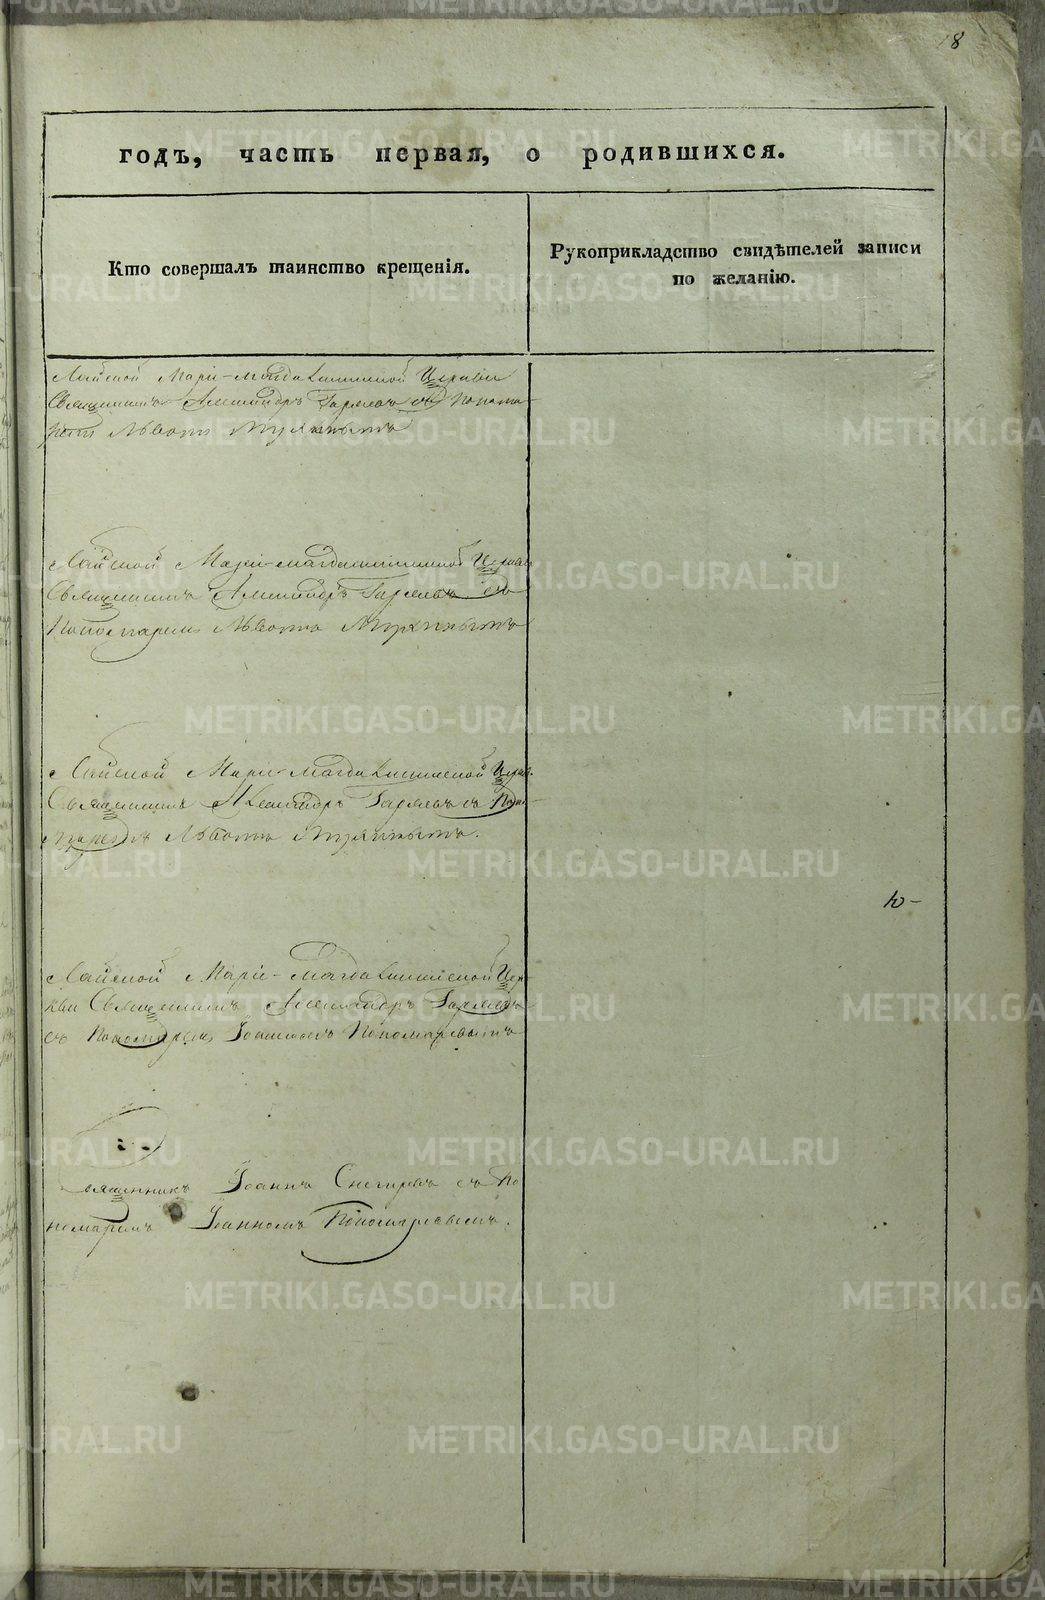 8
годъ, часть первая, о родившихся.
Кто совершалъ таинство крещенія.
Рукоприкладство свидѣтелей записи
по желанію.
Лайской Маріе-Магдалининской Церкви
Священникъ Александръ съ Понома-
ремъ Львомъ
Лайской Маріе-Магдалининской Церкви
Священникъ Александръ съ
Пономаремъ Львомъ
Лайской Маріе-Магдалининской Церкв.
Священникъ Александръ съ Поно-
маремъ Львомъ
ю-
Лайской Маріе-Магдалининской Цер-
кви Священникъ Александръ
съ Пономаремъ Іоанномъ Пономаревымъ
Священникъ Іоаннъ Снегиревъ съ По
номаремъ Іоанномъ Пономаревымъ.
METRIKI.GASO-URAL.RU